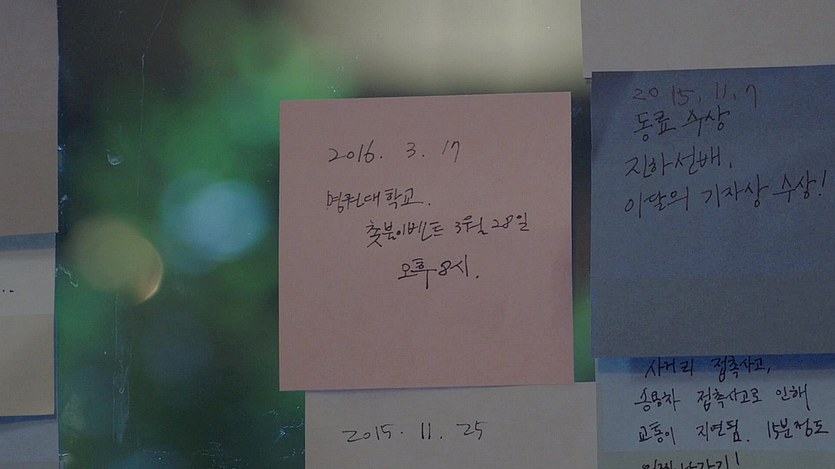 2016. 3. 17
명권대학교.
촛불이벤트 3월 28일
오후 8시.
2015. 11. 7
동료 수상
진하선배,
이달의 기자상 수상!
2015. 11. 25
사거리 접촉사고,
승용차 접촉사고로 인해
교통이 지연됨. 15분정도